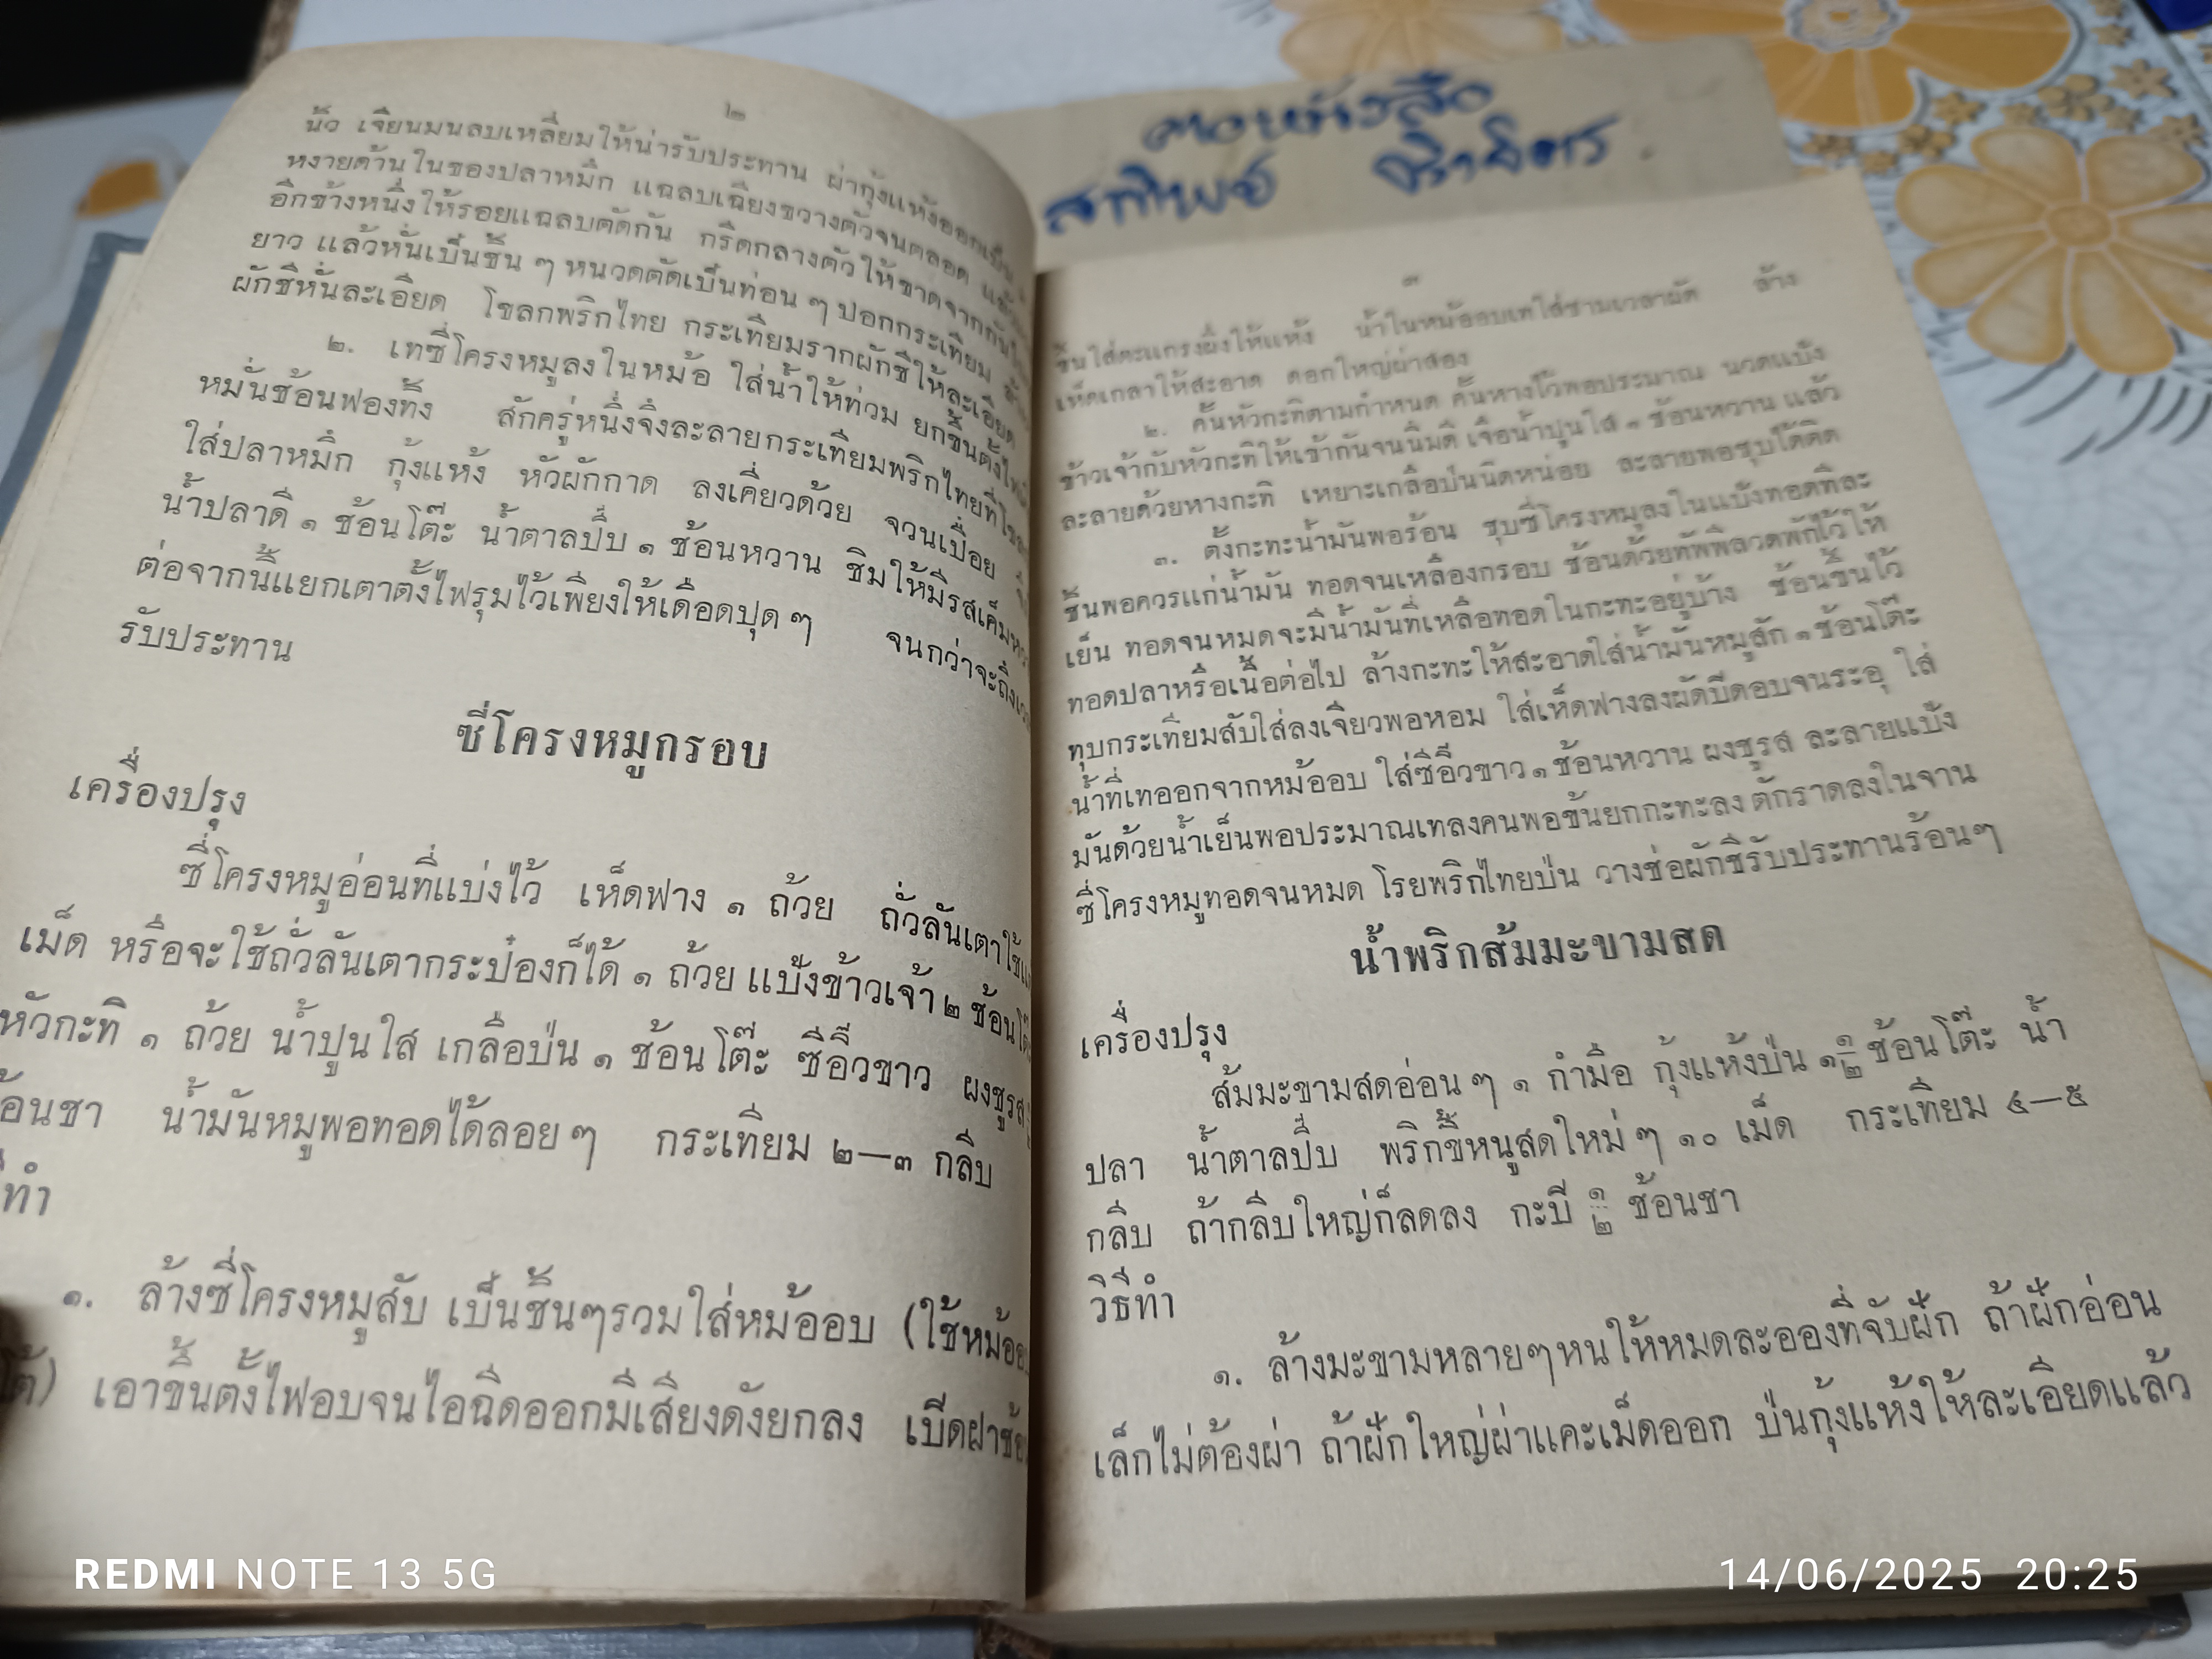 ๒
นิ้ว เจียนมนลบเหลี่ยมให้น่ารับประทาน ผ่ากุ้งแห้งออกเป็น
หงายด้านในของปลาหมึก แฉลบเฉียงขวางตัวจนตลอด แล้ว
อีกข้างหนึ่งให้รอยแฉลบตัดกัน กรีดกลางตัวให้ขาดจากกัน
ยาว แล้วหั่นเป็นชิ้น ๆ หนวดตัดเป็นท่อน ๆ ปอกกระเทียม
ผักชีหั่นละเอียด โขลกพริกไทย กระเทียมรากผักชีให้ละเอียด
๒. เทซี่โครงหมูลงในหม้อ ใส่น้ำให้ท่วม ยกขึ้นตั้งไฟ
หมั่นช้อนฟองทิ้ง สักครู่หนึ่งจึงละลายกระเทียมพริกไทยที่
ใส่ปลาหมึก กุ้งแห้ง หัวผักกาด ลงเคี่ยวด้วย จวนเปื่อย
น้ำปลาดี ๑ ช้อนโต๊ะ น้ำตาลปี๊บ ๑ ช้อนหวาน ชิมให้มีรสเค็ม
ต่อจากนี้แยกเตาตั้งไฟรุมไว้เพียงให้เดือดปุด ๆ จนกว่าจะถึง
รับประทาน
ซี่โครงหมูกรอบ
เครื่องปรุง
ซี่โครงหมูอ่อนที่แบ่งไว้ เห็ดฟาง ๑ ถ้วย ถั่วลันเตาใช้
เม็ด หรือจะใช้ถั่วลันเตากระป๋องก็ได้ ๑ ถ้วย แป้งข้าวเจ้า ๒ ช้อน
หัวกะทิ ๑ ถ้วย น้ำปูนใส เกลือป่น ๑ ช้อนโต๊ะ ซีอิ๊วขาว ผงชูรส
้อนชา น้ำมันหมูพอทอดได้ลอย ๆ กระเทียม ๒—๓ กลีบ
ทำ
๑. ล้างซี่โครงหมูสับ เป็นชิ้นๆรวมใส่หม้ออบ (ใช้หม้อ
เอาขึ้นตั้งไฟอบจนไอฉีดออกมีเสียงดังยกลง เปิดฝา
ตอหนังสือ
๓
ชิ้นใส่ตะแกรงผึ่งให้แห้ง น้ำในหม้ออบเทใส่ชามเวลาผัด ล้าง
เห็ดเกลาให้สะอาด ดอกใหญ่ผ่าสอง
๒. คั้นหัวกะทิตามกำหนด คั้นหางไว้พอประมาณ นวดแป้ง
ข้าวเจ้ากับหัวกะทิให้เข้ากันจนนิ่มดี เจือน้ำปูนใส ๑ ช้อนหวาน แล้ว
ละลายด้วยหางกะทิ เหยาะเกลือป่นนิดหน่อย ละลายพอชุบได้ติด
๓. ตั้งกะทะน้ำมันพอร้อน ชุบซี่โครงหมูลงในแป้งทอดทีละ
ชิ้นพอควรแก่น้ำมัน ทอดจนเหลืองกรอบ ช้อนด้วยทัพพีลวดพักไว้ให้
เย็น ทอดจนหมดจะมีน้ำมันที่เหลือทอดในกะทะอยู่บ้าง ช้อนขึ้นไว้
ทอดปลาหรือเนื้อต่อไป ล้างกะทะให้สะอาดใส่น้ำมันหมูสัก ๑ ช้อนโต๊ะ
ทุบกระเทียมสับใส่ลงเจียวพอหอม ใส่เห็ดฟางลงผัดปิดอบจนระอุ ใส่
น้ำที่เทออกจากหม้ออบ ใส่ซีอิ๊วขาว ๑ ช้อนหวาน ผงชูรส ละลายแป้ง
มันด้วยน้ำเย็นพอประมาณเทลงคนพอข้นยกกะทะลง ตักราดลงในจาน
ซี่โครงหมูทอดจนหมด โรยพริกไทยป่น วางช่อผักชีรับประทานร้อนๆ
น้ำพริกส้มมะขามสด
เครื่องปรุง
ส้มมะขามสดอ่อน ๆ ๑ กำมือ กุ้งแห้งป่น ๑ ๑/๒ ช้อนโต๊ะ น้ำ
ปลา น้ำตาลปี๊บ พริกขี้หนูสดใหม่ ๆ ๑๐ เม็ด กระเทียม ๔—๕
กลีบ ถ้ากลีบใหญ่ก็ลดลง กะปิ ๑/๒ ช้อนชา
วิธีทำ
๑. ล้างมะขามหลายๆหนให้หมดละอองที่จับฝัก ถ้าฝักอ่อน
เล็กไม่ต้องผ่า ถ้าฝักใหญ่ผ่าแคะเม็ดออก ป่นกุ้งแห้งให้ละเอียดแล้ว
REDMI NOTE 13 5G
14/06/2025 20:25